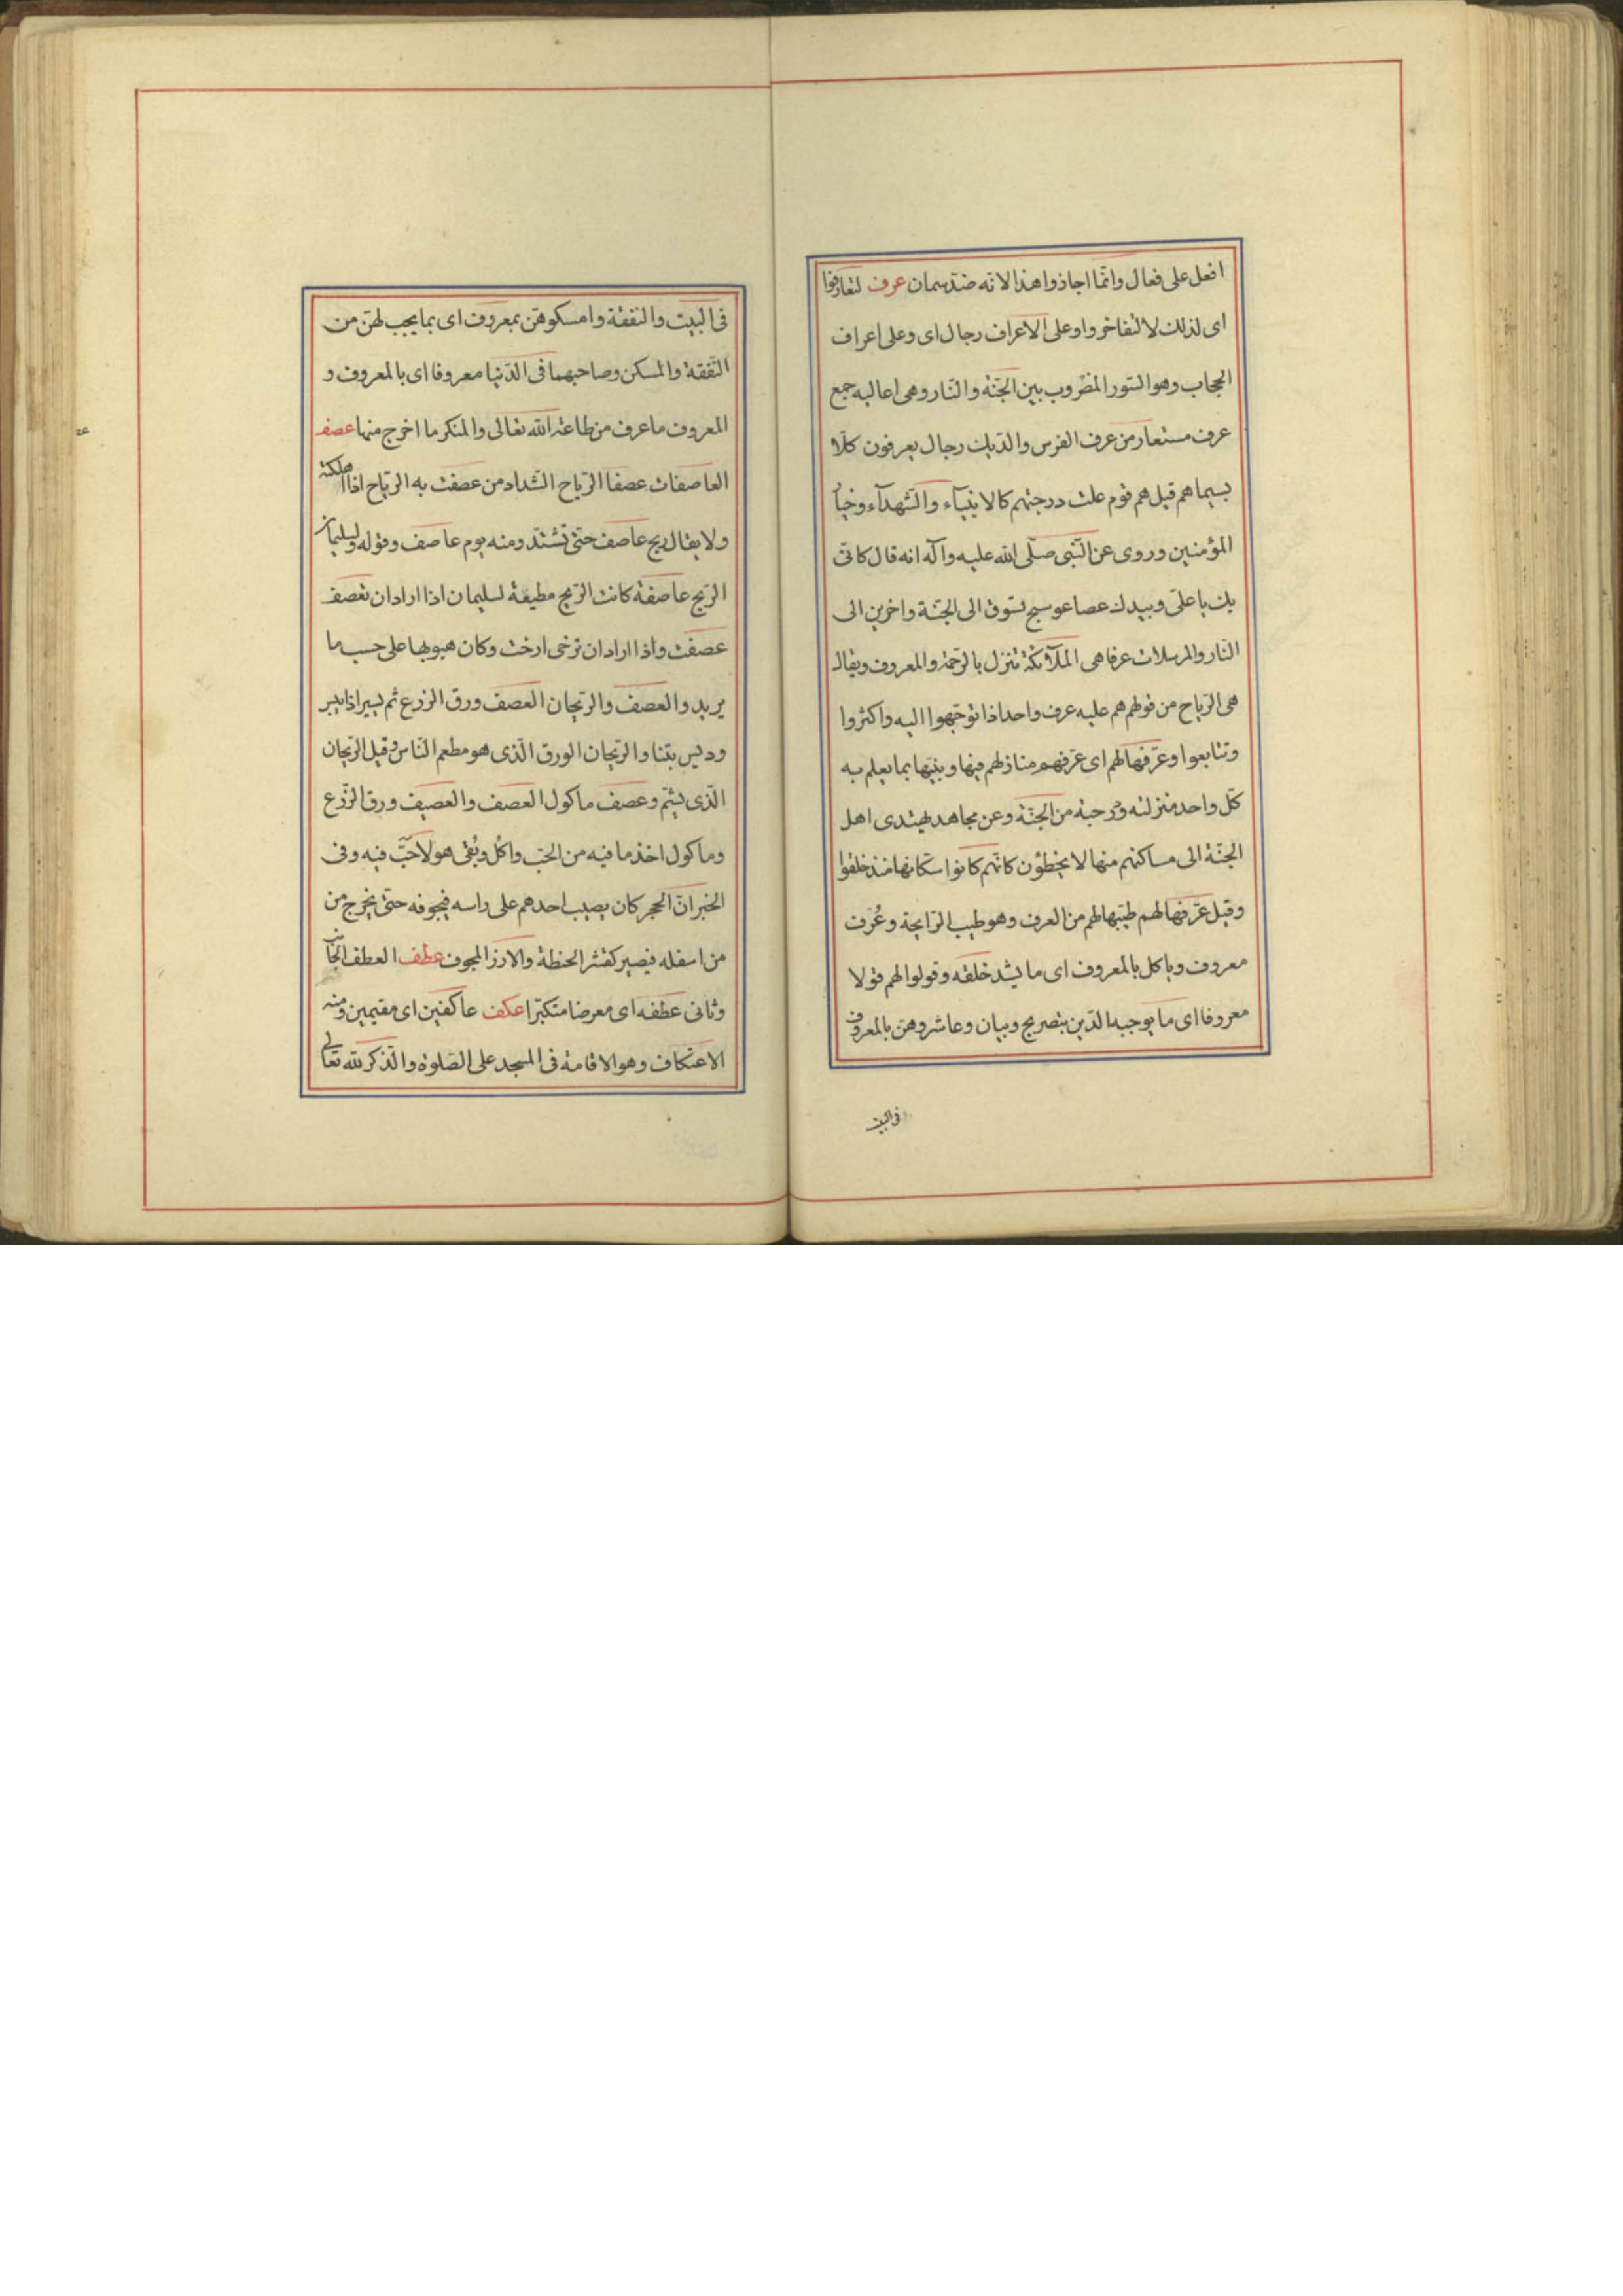 افعل على فعال وانّما اجازوا هذا لانه ضدّ سمان عرف لتعارفوا
اى لذلك لا لتفاخروا وعلى الاعراف رجال اى وعلى اعراف
الحجاب وهو السّور المضروب بين الجنّة والنّار وهى اعاليه جمع
عرف مستعار من عرف الفرس والدّيك رجال يعرفون كلّا
بسيماهم قيل هم قوم علت درجتهم كالانبيآء والشّهدآء وخيار
المؤمنين وروى عن النّبى صلّى الله عليه وآله انه قال كانّى
بك يا علىّ وبيدك عصا عوسج تسوق الى الجنّة واخرين الى
النّار والمرسلات عرفا هى الملآئكة تنزل بالرّحمة والمعروف ويقال
هى الرّياح من قولهم هم عليه عرف واحد اذا توجّهوا اليه واكثروا
وتتابعوا وعرّفها لهم اى عرّفهم منازلهم فيها وبيّنها بما يعلم به
كلّ واحد منزلته ودرجته من الجنّة وعن مجاهد يهتدى اهل
الجنّة الى مساكنهم منها لا يخطؤن كانّهم كانوا سكّانها منذ خلقوا
وقيل عرّفها لهم طيّبها لهم من العرف وهو طيب الرّايحة وعُرف
معروف وياكل بالمعروف اى ما يسّد خلّته وقولوا لهم قولا
معروفا اى ما يوجبه الدّين بتصريح وبيان وعاشروهنّ بالمعروف
فى البيت
فى البيت والنفقة وامسكوهنّ بمعروف اى بما يجب لهنّ من
النّفقة والمسكن وصاحبهما فى الدّنيا معروفا اى بالمعروف و
المعروف ما عرف من طاعة الله تعالى والمنكر ما اخرج منها عصف
العاصفات عصفا الرّياح الشّداد من عصفت به الرّياح اذا اهلكته
ولا يقال ريح عاصف حتى تشتّد ومنه يوم عاصف وقوله ولسليمان
الرّيح عاصفة كانت الرّيح مطيعة لسليمان اذا اراد ان تعصف
عصفت واذا اراد ان ترخى ارخت وكان هبوبها على حسب ما
يريد والعصف والرّيحان العصف ورق الزرع ثم يسير اذا يبس
وديس بتنا والرّيحان الورق الّذى هو مطعم النّاس وقيل الرّيحان
الّذى يشمّ وعصف ماكول العصف والعصيف ورق الزّرع
وماكول اخذ ما فيه من الحبّ واُكل وبقى هو لا حبّ فيه وفى
الخبر انّ الحجر كان يصيب احدهم على راسه فيجوفه حتى يخرج من
من اسفله فيصير كقشر الحنطة والارز المجوف عطف العطف الجانب
وثانى عطفه اى معرضا متكبّرا عكف عاكفين اى مقيمين ومنه
الاعتكاف وهو الاقامة فى المسجد على الصّلوة والذّكر لله تعالى